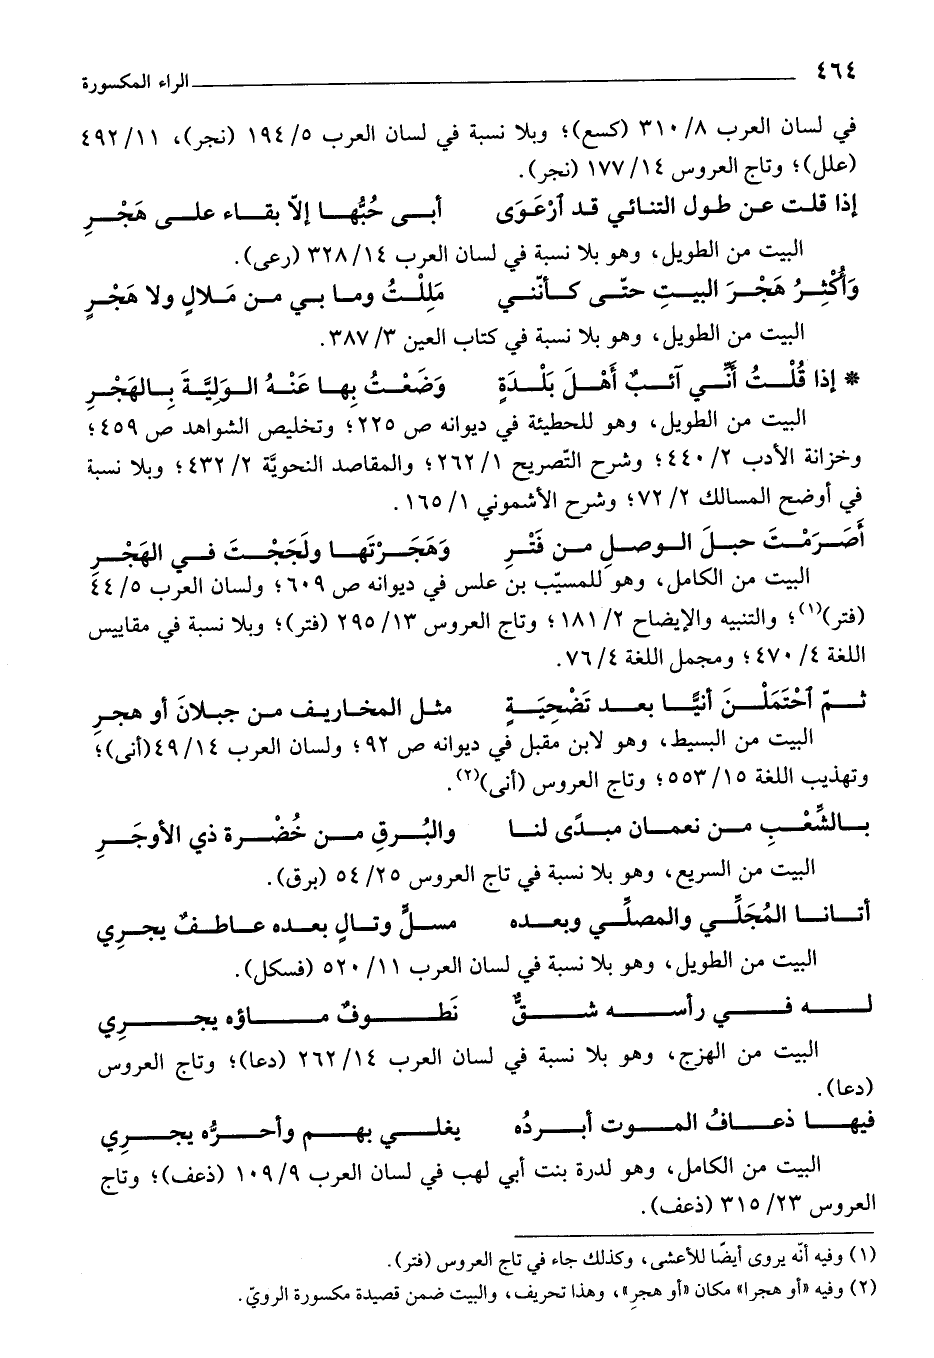 ٤٦٤ الراء المكسورة
في لسان العرب ٨/ ٣١٠ (كسع)؛ وبلا نسبة في لسان العرب ٥/ ١٩٤ (نجر)، ١١/ ٤٩٢
(علل)؛ وتاج العروس ١٤/ ١٧٧ (نجر).
إذا قلت عن طول التنائي قد ٱرْعَوَى أبى حُبُّها إلاّ بقاء على هَجْرِ
البيت من الطويل، وهو بلا نسبة في لسان العرب ١٤/ ٣٢٨ (رعى).
وَأُكْثِرُ هَجْرَ البيتِ حتّى كأنّني مَلِلْتُ وما بي من مَلالٍ ولا هَجْرِ
البيت من الطويل، وهو بلا نسبة في كتاب العين ٣/ ٣٨٧.
* إذا قُلْتُ أنِّي آئبٌ أَهْلَ بَلْدَةٍ وَضَعْتُ بِها عَنْهُ الوَلِيَّةَ بِالهَجْرِ
البيت من الطويل، وهو للحطيئة في ديوانه ص ٢٢٥؛ وتخليص الشواهد ص ٤٥٩؛
وخزانة الأدب ٢/ ٤٤٠؛ وشرح التّصريح ١/ ٢٦٢؛ والمقاصد النحويَّة ٢/ ٤٣٢؛ وبلا نسبة
في أوضح المسالك ٢/ ٧٢؛ وشرح الأشموني ١/ ١٦٥.
أَصَرَمْتَ حبلَ الوصلِ من فَتْرِ وَهَجَرْتَها ولَجَجْتَ في الهَجْرِ
البيت من الكامل، وهو للمسيّب بن علس في ديوانه ص ٦٠٩؛ ولسان العرب ٥/ ٤٤
(فتر)(١)؛ والتنبيه والإيضاح ٢/ ١٨١؛ وتاج العروس ١٣/ ٢٩٥ (فتر)؛ وبلا نسبة في مقاييس
اللغة ٤/ ٤٧٠؛ ومجمل اللغة ٤/ ٧٦.
ثمّ ٱحْتَمَلْنَ أنيًّا بعد تَضْحِيَةٍ مثل المخاريف من جبلانَ أو هجرِ
البيت من البسيط، وهو لابن مقبل في ديوانه ص ٩٢؛ ولسان العرب ١٤/ ٤٩(أنى)؛
وتهذيب اللغة ١٥/ ٥٥٣؛ وتاج العروس (أنى)(٢).
بالشِّعْبِ من نعمان مبدًى لنا والبُرقِ من خُضْرة ذي الأوجَرِ
البيت من السريع، وهو بلا نسبة في تاج العروس ٢٥/ ٥٤ (برق).
أتانا المُجَلِّي والمصلِّي وبعده مسلٍّ وتالٍ بعده عاطفٌ يجرِي
البيت من الطويل، وهو بلا نسبة في لسان العرب ١١/ ٥٢٠ (فسكل).
له في رأسه شقٌّ نَطوفٌ ماؤه يجرِي
البيت من الهزج، وهو بلا نسبة في لسان العرب ١٤/ ٢٦٢ (دعا)؛ وتاج العروس
(دعا).
فيها ذعافُ الموت أبردُه يغلي بهم وأحرُّه يجرِي
البيت من الكامل، وهو لدرة بنت أبي لهب في لسان العرب ٩/ ١٠٩ (ذعف)؛ وتاج
العروس ٢٣/ ٣١٥ (ذعف).
(١) وفيه أنّه يروى أيضًا للأعشى، وكذلك جاء في تاج العروس (فتر).
(٢) وفيه «أو هجرا» مكان «أو هجرِ»، وهذا تحريف، والبيت ضمن قصيدة مكسورة الرويّ.